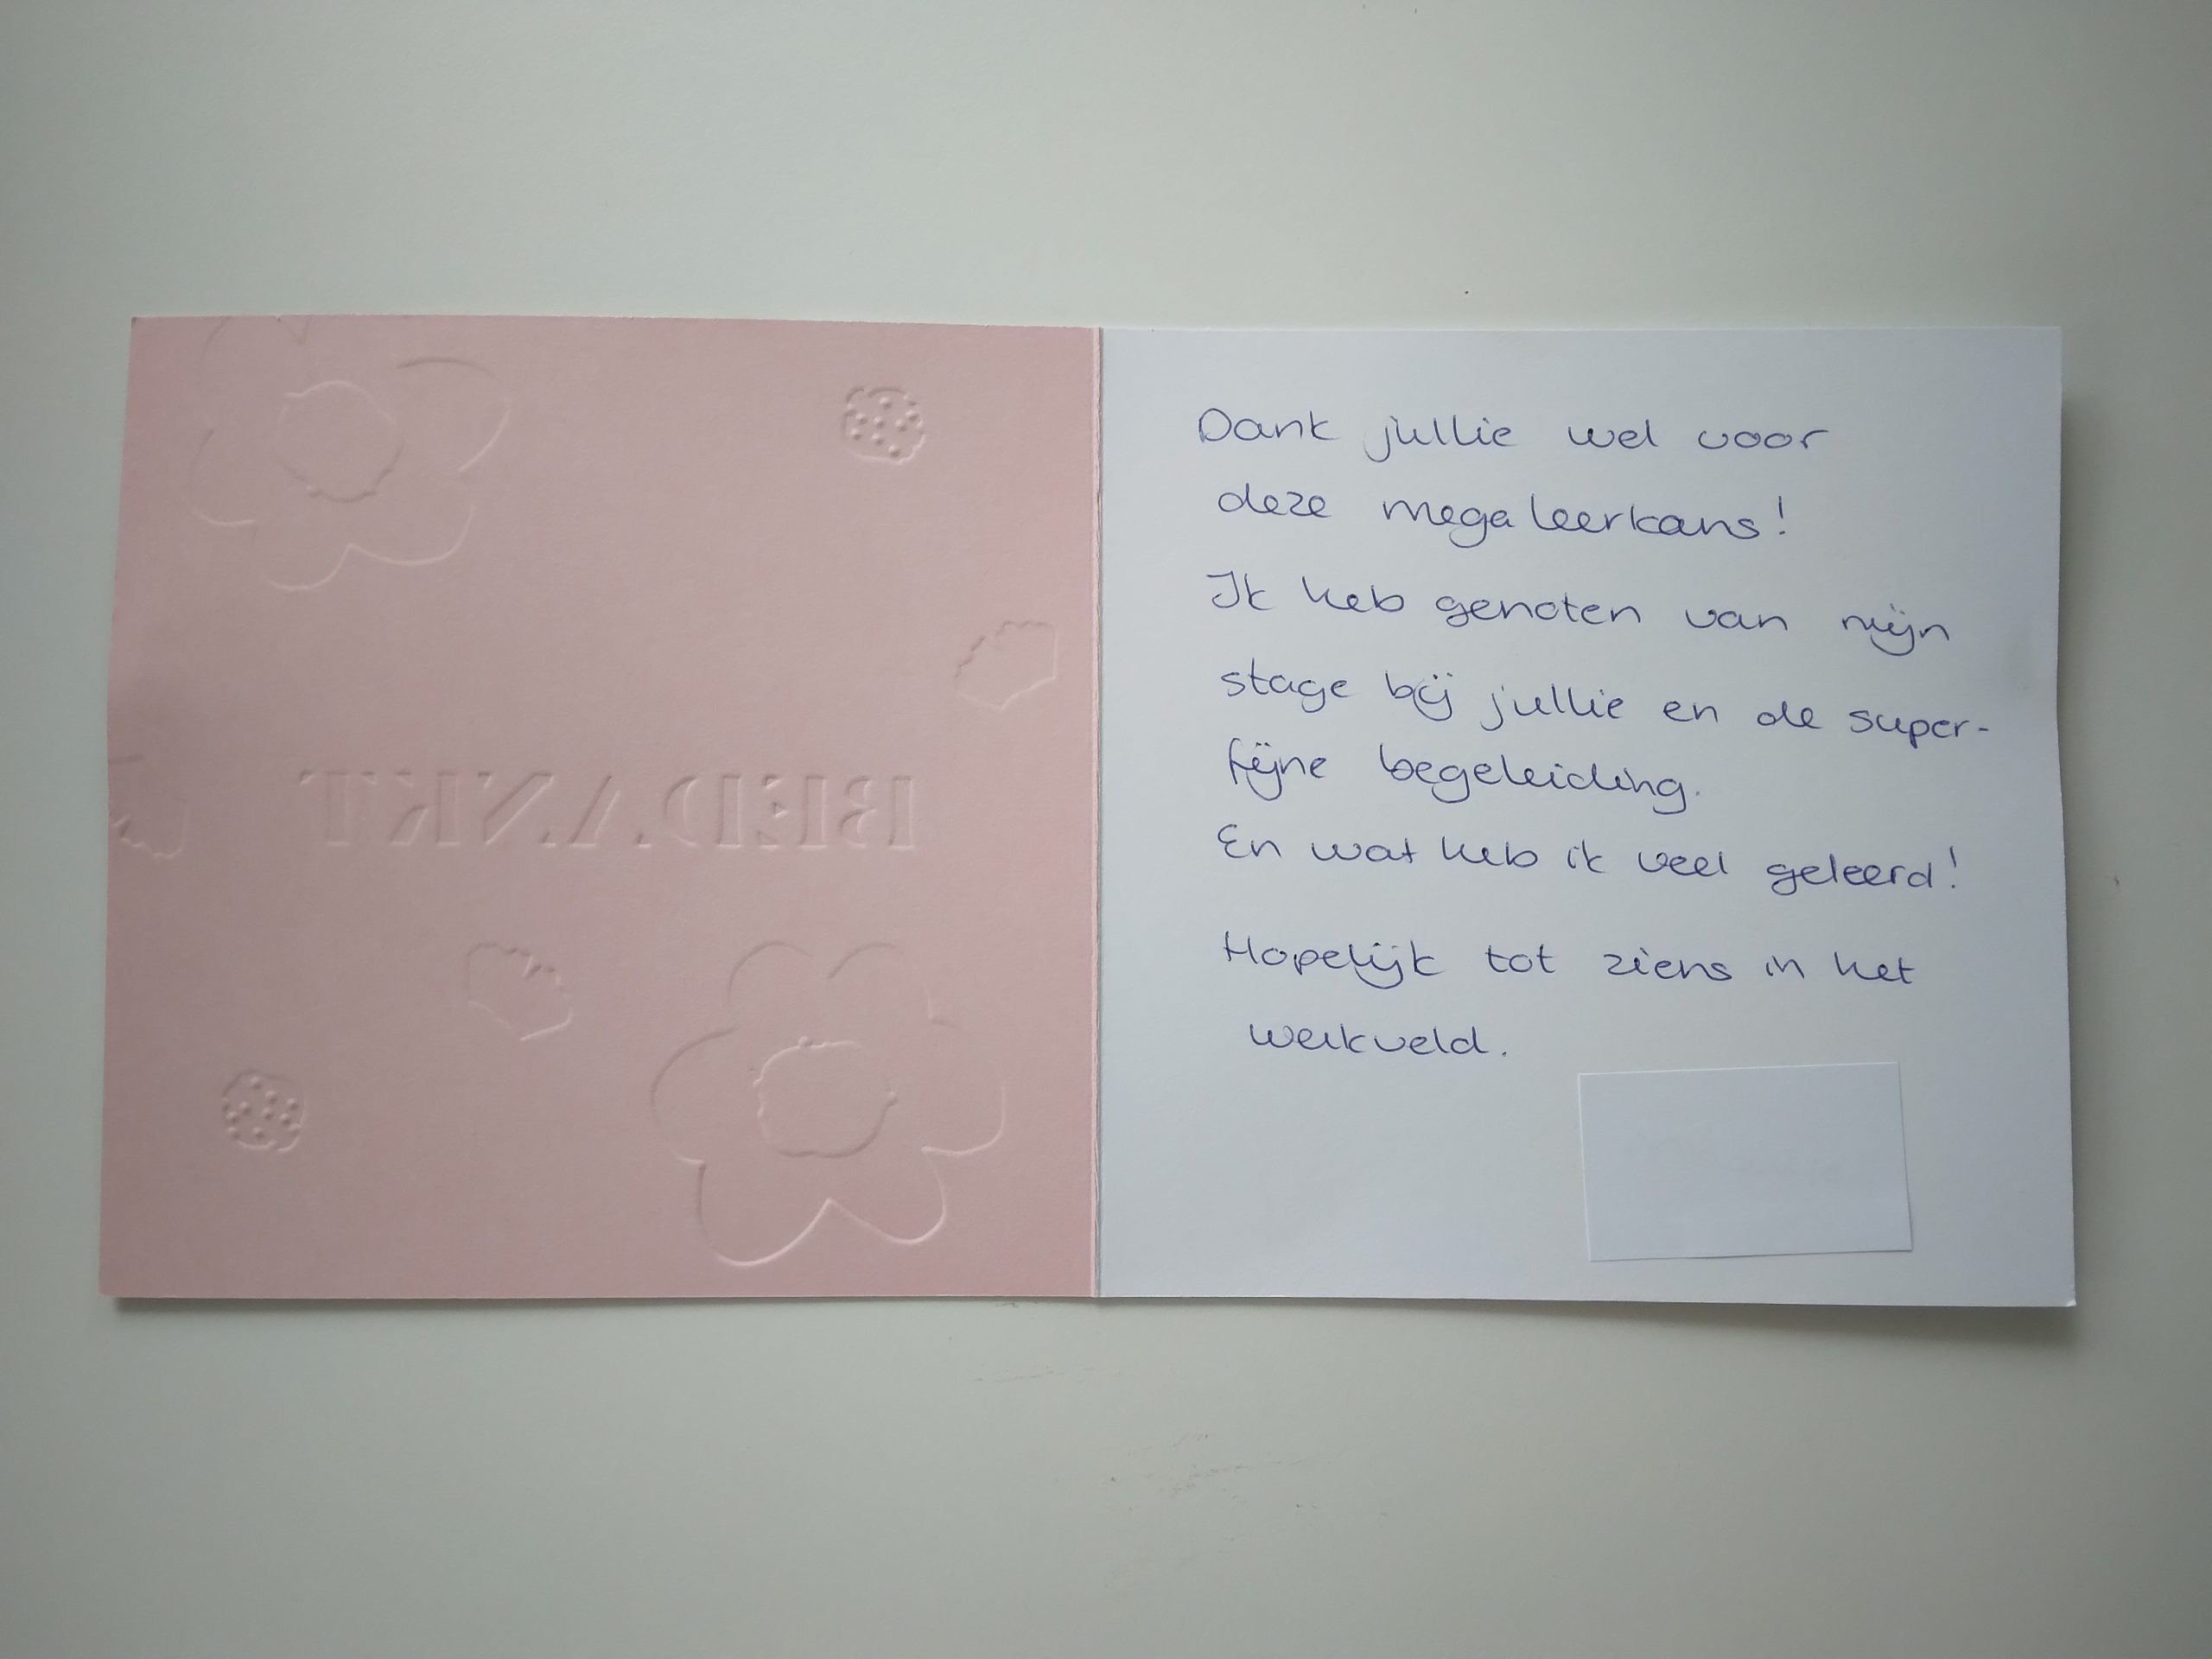 BEDANKT
Dank jullie wel voor
deze mega leerkans!
Ik heb genoten van mijn
stage bij jullie en de super-
fijne begeleiding.
En wat heb ik veel geleerd!
Hopelijk tot ziens in het
werkveld.